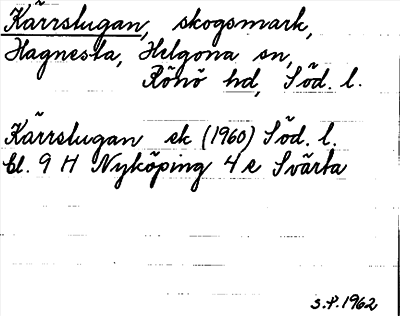 Kärrstugan, skogsmark,
Hagnesta, Helgona sn,
Rönö hd, Söd. l.
Kärrstugan ek (1960) Söd. l.
bl. 9 H Nyköping 4 e Svärta
S.P. 1962